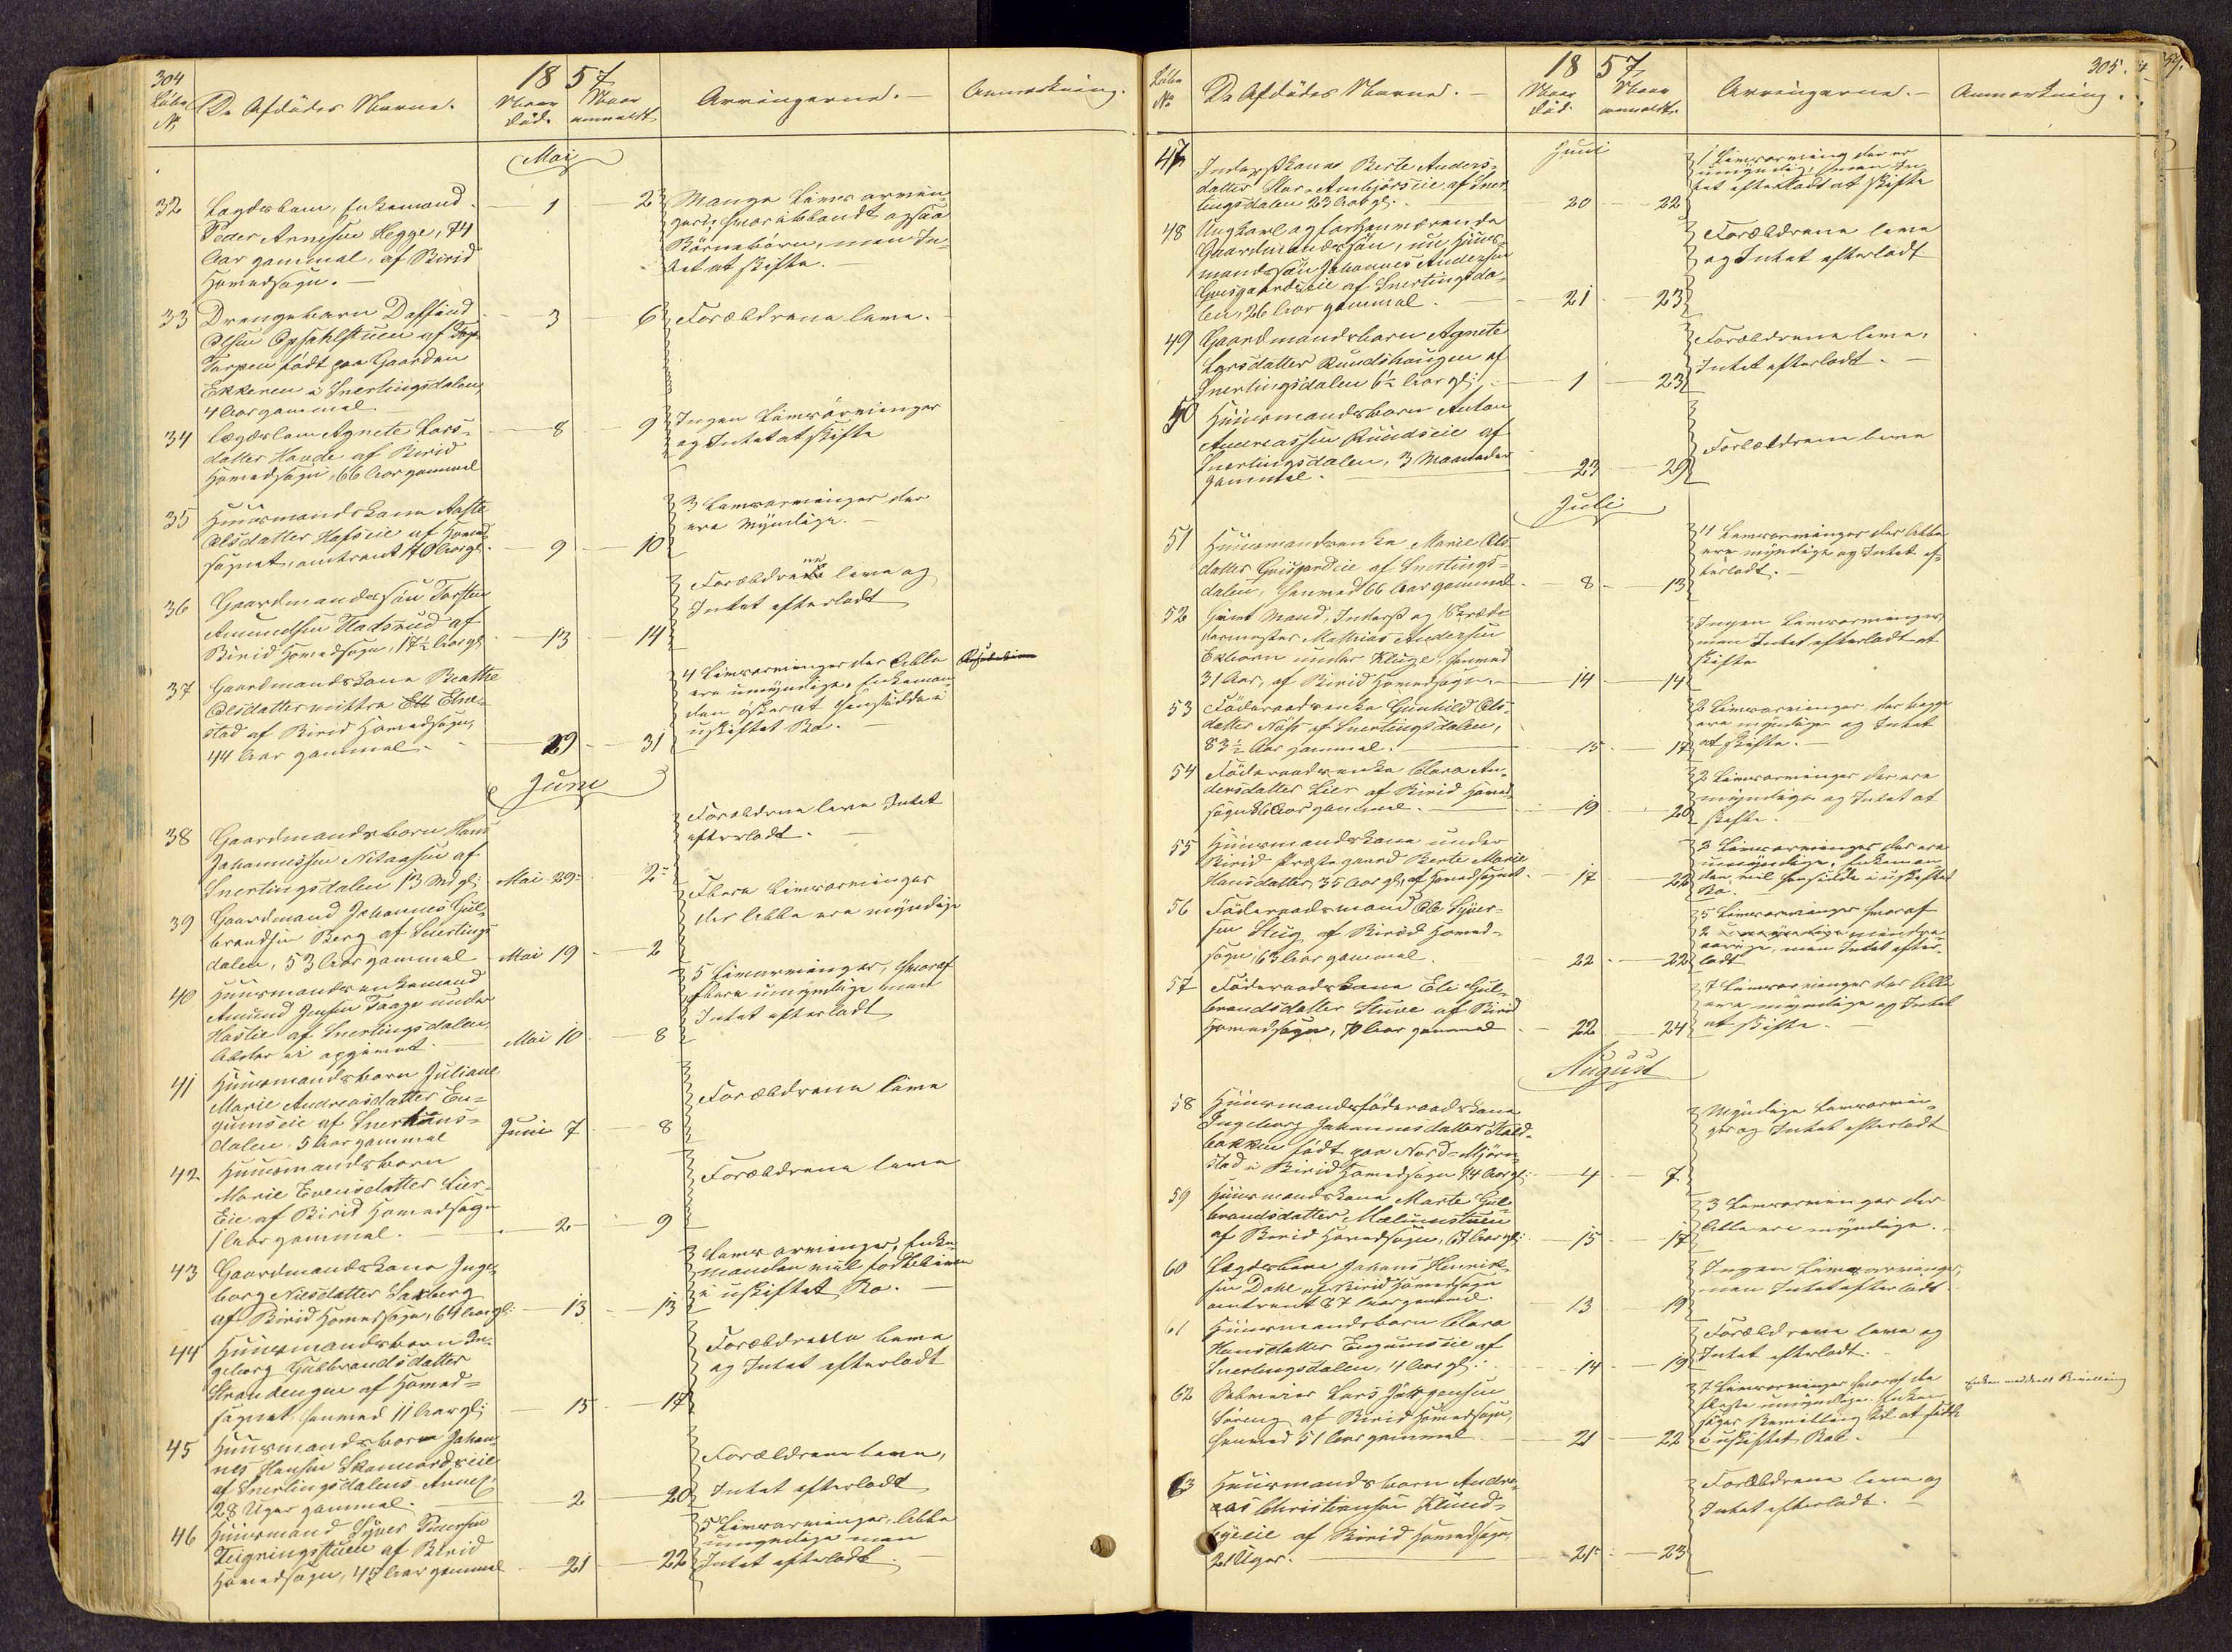 304
1857
Løbe No
De Afdødes Navne.
Naar død.
Naar anmeldt
Arvingerne.
Anmærkning.
Mai
32 Lægdslem, Enkemand
Peder Arnesen Hegge, 74
Aar gammel, af Birid
Hovedsogn.
1 23
Mange Livsarvin-
ger, hvoriblandt ogsaa
Børnebørn, men In-
tet at skifte.
33 Drengebarn Dalfind
Olsen Opsahlstuen af
Torpen født paa Gaarden
Ekkeren i Snertingsdalen
4 Aar gammel
3 6
Forældrene leve.
34 Lægdslem Agnete Lars-
datter Hauge af Birid
Hovedsogn, 66 Aar gammel
8 9
Ingen Livsarvinger
og Intet at skifte
35 Huusmandskone Aaste
Olsdatter Hofseie af Hoved-
sognet, omtrent 70 Aar gl.
9 10
3 Livsarvinger der
ere Myndige.
36 Gaardmandssøn Torsten
Amundsen Stadsrud af
Birid Hovedsogn, 17½ Aar gl.
13 14
Forældrene leve og
Intet efterladt
37 Gaardmandskone Beathe
Olsdatter Elve-
stad af Birid Hovedsogn,
44 Aar gammel.
29 31
4 Livsarvinger der Alle
ere umyndige. Enkeman-
den ønsker at hensidde i
uskiftet Bo.
Juni
38 Gaardmandsbarn Hans
Johannessen Nitaasen af
Snertingsdalen 13 Md gl.
Mai 29 2
Forældrene leve Intet
efterladt.
39 Gaardmand Johannes Gul-
brandsen Berg af Snertings-
dalen, 53 Aar gammel
Mai 19 2
Flere Livsarvinger
der Alle ere myndige
40 Huusmandsenkemand
Amund Jensen Taage under
Hastie af Snertingsdalen
Alder ei opgivet.
Mai 10 8
5 Livsarvinger, hvoraf
flere umyndige men
Intet efterladt
41 Huusmandsbarn Juliane
Marie Andreasdatter En-
gumseie af Snertings-
dalen. 5 Aar gammel
Juni 7 8
Forældrene leve
42 Huusmandsbarn
Marie Evensdatter Lier-
Eie af Birid Hovedsogn
1 Aar gammel.
2 9
Forældrene leve
43 Gaardmandskone Inge-
borg Nilsdatter Saxberg
af Birid Hovedsogn, 64 Aar gl.
13 13
Livsarvinger, Enke-
manden vil
i uskiftet Bo.
44 Huusmandsbarn In-
geborg Gulbrandsdatter
Strandengen af Hoved-
sognet, henved 11 Aar gl.
15 17
Forældrene leve
og Intet efterladt
45 Huusmandsbarn Johan-
nes Hansen Skonnordseie
af Snertingsdalens Annex,
28 Uger gammel.
2 20
Forældrene leve,
Intet efterladt
46 Huusmand Syver Pedersen
Teigningstuen af Birid
Hovedsogn, 45 Aar gammel
21 22
5 Livsarvinger, Alle
umyndige men
Intet efterladt.
305.
1857
Løbe No
De Afdødes Navne.
Naar Død.
Naar anmeldt.
Arvingerne.
Anmærkning.
Juni
47 Inderstkone Berte Anders-
datter af Sner-
tingsdalen 23 Aar gl.
20 22
1 Livsarving der er
umyndig, men In-
tet efterladt at skifte
48 Ungkarl og forhenværende
Gaardmandssøn, nu Huus-
mandssøn Johannes Andersen
Griisgaardseie af Snertingsda-
len, 26 Aar gammel.
21 23
Forældrene leve
og Intet efterladt
49 Gaardmandsbarn Agnete
Larsdatter Rundshaugen af
Snertingsdalen 6½ Aar gl.
1 23
Forældrene leve,
Intet efterladt.
50 Huusmandsbarn Anton
Andreassen Rundseie af
Snertingsdalen, 3 Maaneder
gammel.
23 29
Forældrene leve
Juli
51 Huusmandsenke Marie Ols-
datter Griisgardeie af Snertings-
dalen, henved 66 Aar gammel.
8 13
4 Livsarvinger der Alle
ere myndige og Intet ef-
terladt.
52 Givt Mand, Inderst og Skræd-
dermester Mathias Andersen
Ekbarn under Kluge, henved
31 Aar, af Birid Hovedsogn.
14 14
Ingen Livsarvinger,
men Intet efterladt at
skifte
53 Føderaadsenke Gunhild Ols-
datter Næss af Snertingsdalen,
83½ Aar gammel.
15 17
2 Livsarvinger, der begge
ere myndige og Intet
at skifte.
54 Føderaadsenke Clara An-
dersdatter Lier af Birid Hoved-
sogn 86 Aar gammel.
19 20
2 Livsarvinger der ere
myndige og Intet at
skifte.
55 Huusmandskone under
Birid Præstegaard Berte Marie
Hansdatter, 35 Aar gl. af Hovedsognet.
17 22
3 Livsarvinger der ere
umyndige. Enkeman-
den vil hensidde i uskiftet
Bo.
56 Føderaadsmand Ole Syver-
sen Stug af Birid Hoved-
sogn, 63 Aar gammel.
22 22
5 Livsarvinger hvoraf
2 mindre-
aarige, men Intet efter-
ladt
57 Føderaadskone Eli Gul-
brandsdatter Stuve af Birid
Hovedsogn, 70 Aar gammel
22 24
7 Livsarvinger der Alle
ere myndige og Intet
at skifte.
August
58 Huusmandsføderaadskone
Ingeborg Johannesdatter Kold-
bakken født paa Nord-Mjørn-
stad i Birid Hovedsogn 74 Aar gl.
4 7
Myndige Livsarvin-
ger og Intet efterladt
59 Huusmandskone Marte Gul-
brandsdatter Mælumstuen
af Birid Hovedsogn, 67 Aar gl.
15 17
3 Livsarvinger der
Alle ere myndige.
60 Lægdslem Johans Henrik-
sen Dahl af Birid Hovedsogn
omtrent 87 Aar gammel.
13 19
Ingen Livsarvinger,
men Intet efterladt.
61 Huusmandsbarn Clara
Hansdatter Engumseie af
Snertingsdalen, 4 Aar gl.
14 19
Forældrene leve og
Intet efterladt.
62 Selveier Lars Jørgensen
Søreng af Birid Hovedsogn,
henved 51 Aar gammel
21 22
7 Livsarvinger hvoraf de
fleste umyndige. Enken
søger Bevilling til at sidde
i uskiftet Boe.
Enken meddeelt Bevilling
63 Huusmandsbarn Andre-
as Christiansen Klund-
byeeie af Birid Hovedsogn,
21 Uger.
21 23
Forældrene leve og
Intet efterladt.